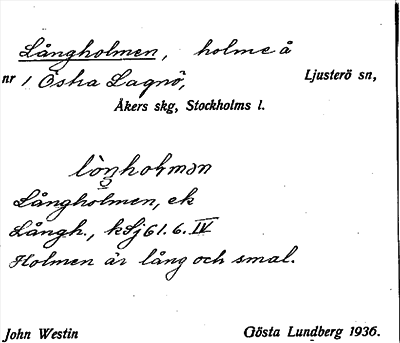 Långholmen, holme å
nr 1 Östra Lagnö, Ljusterö sn,
Åkers skg, Stockholms l.
Långholmen, ek
Långh., kSj 61. 6. IV
Holmen är lång och smal.
John Westin Gösta Lundberg 1936.